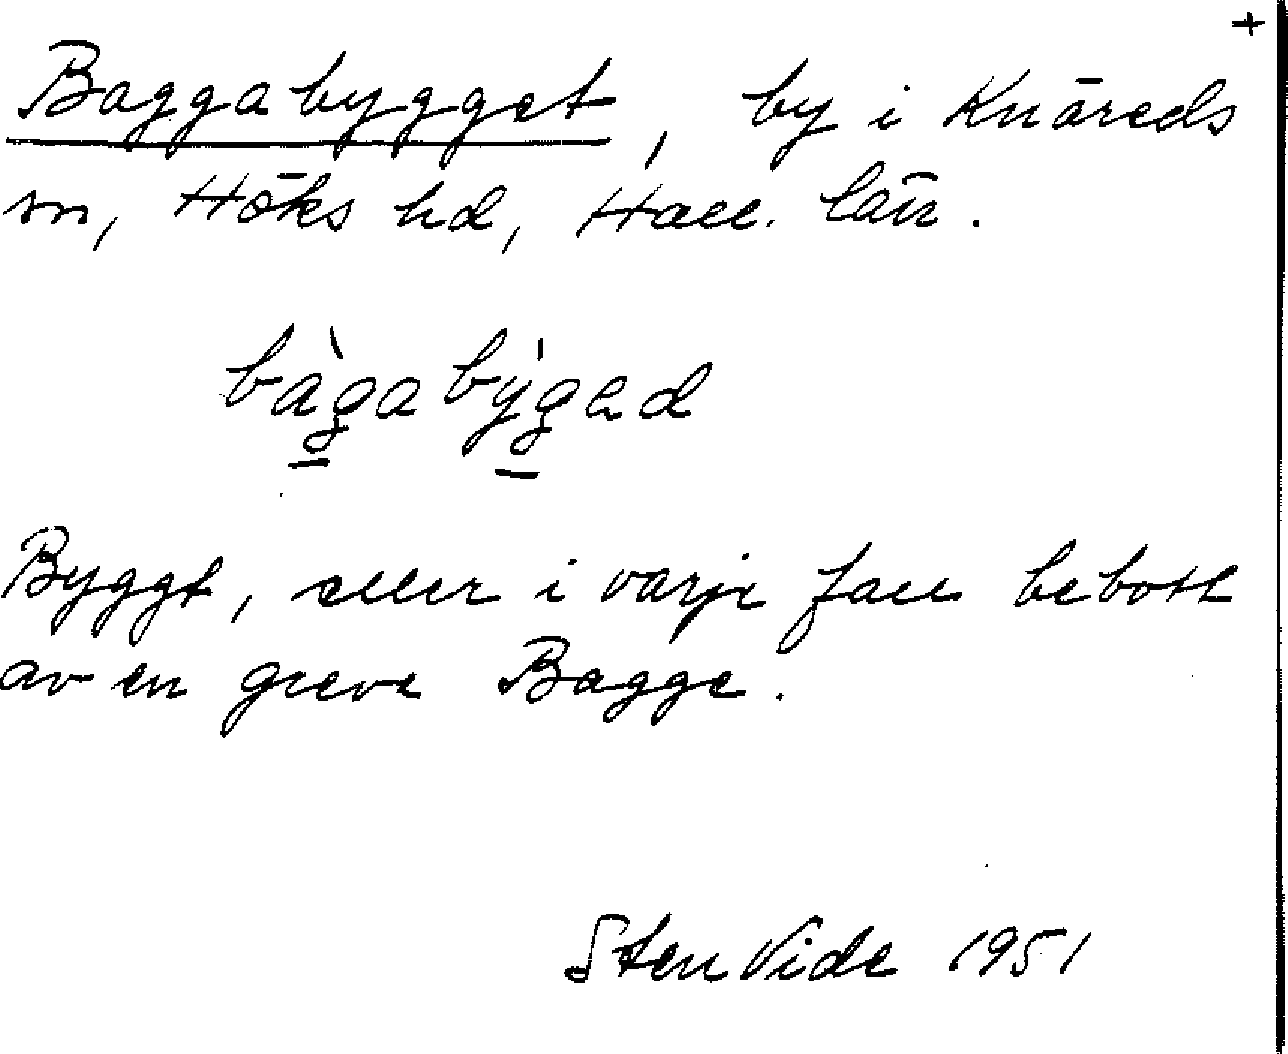 +
Baggabygget, by i Knäreds
sn, Höks hd, Hall. län.
bàgabýgəd
Byggt, eller i varje fall bebott
av en greve Bagge.
Sten Vide 1951